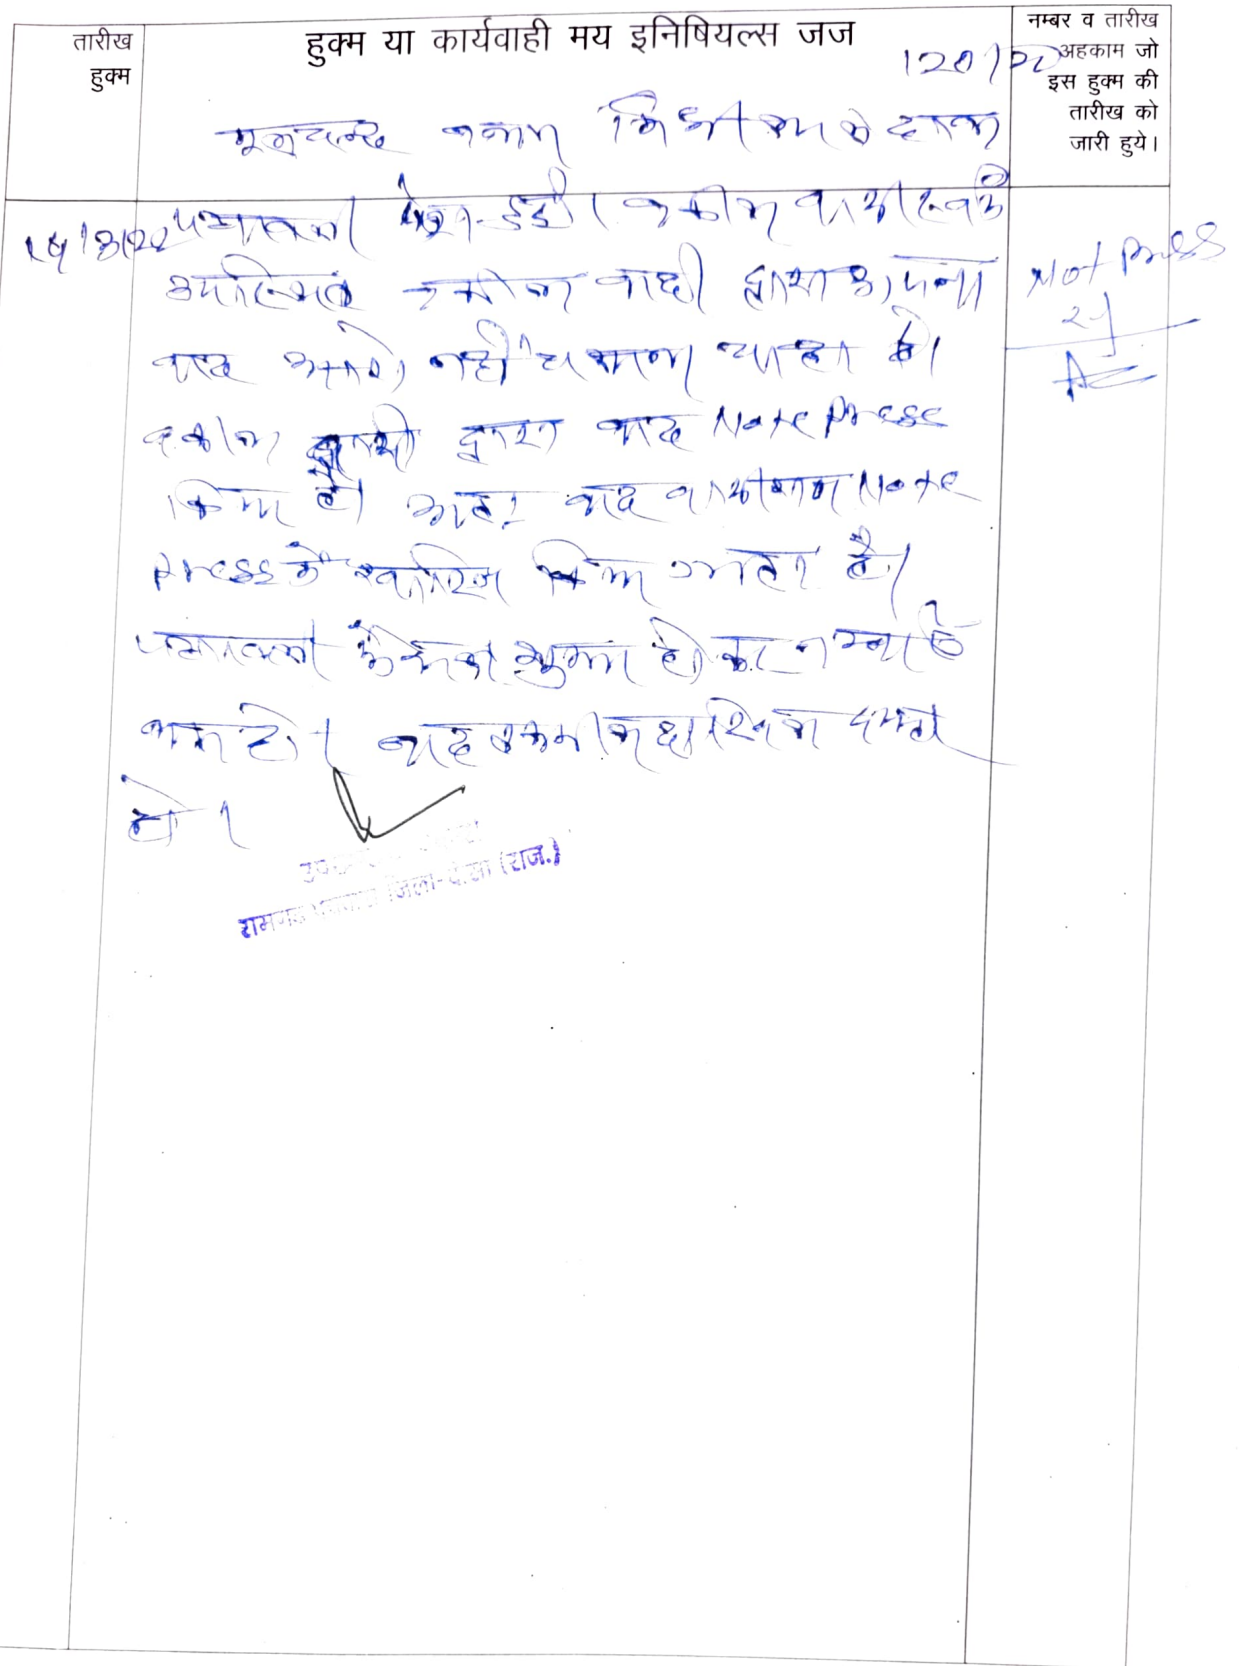 तारीख
हुक्म
हुक्म या कार्यवाही मय इनिषियल्स जज
नम्बर व तारीख
अहकाम जो
इस हुक्म की
तारीख को
जारी हुये।
120/22
मूलचन्द बनाम
पत्रावली पेश हुई। वकील वादी
उपस्थित वकील वादी द्वारा अपना
वाद आगे नही चलाना चाहता है।
वकील द्वारा वाद Note Press
किया है। अतः वाद वादीगण Note
Press में खारिज किया जाता है।
पत्रावली फैसल शुमार होकर नम्बर से
कम हो। बाद तकमील दाखिल दफ्तर
हो।
Not Press
(राज.)